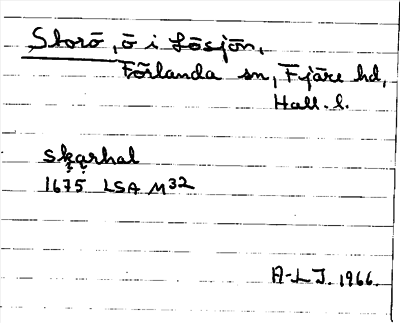 Storö, ö i Lösjön,
Förlanda sn, Fjäre hd,
Hall. l.
skarhal
1675 LSA M32
A-LJ. 1966.